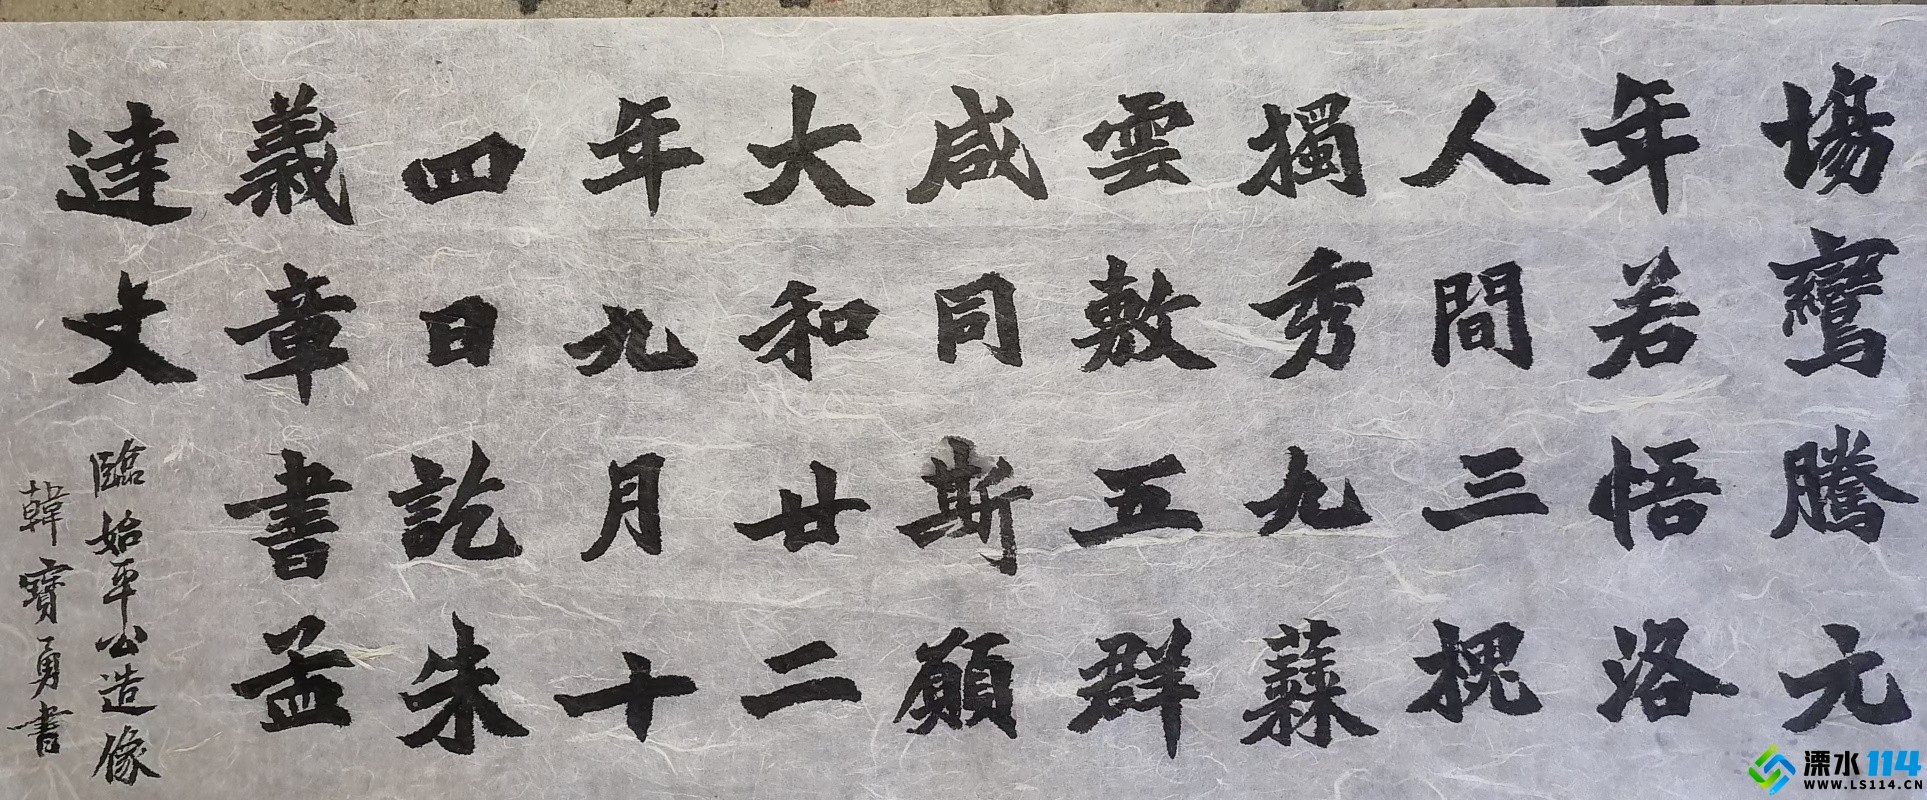 塲鸞騰元
年若悟洛
人間三槐
獨秀九蕀
雲敷五群
咸同斯願
大和廿二
年九月十
四日訖朱
義章書孟
達文
臨始平公造像
韓寶勇書
溧水114
WWW.LS114.CN